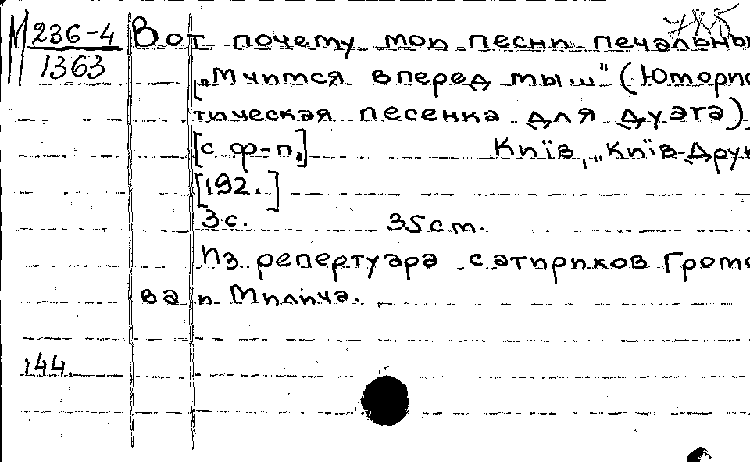 М 236-4 Вот почему мои песни печальны
1363
„Мчится вперед мыш" (Юморис
тическая песенка для дуэта)
[с ф-п.] Київ, „Київ-Друк
[192.]
3 с. 35 cm.
Из репертуара сатириков Громо
ва и Милича.
144